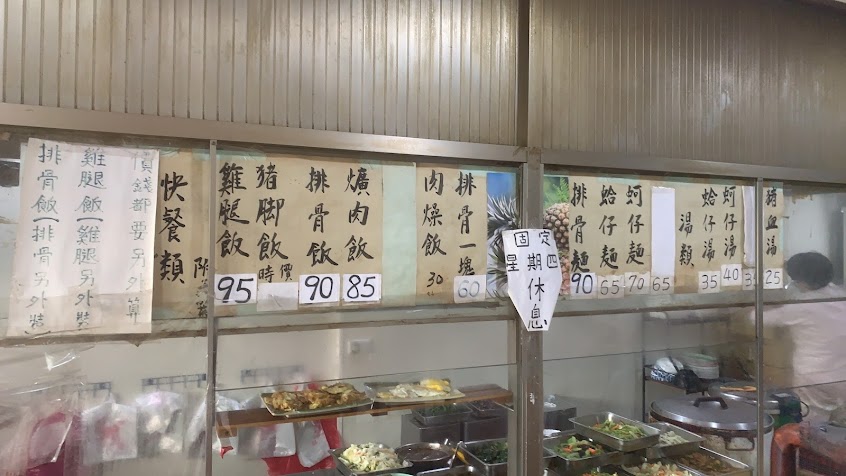 排骨飯(排骨另外裝
雞腿飯(雞腿另外裝
價錢都要另外算
快餐類
附
雞腿飯
95
豬脚飯
時價
排骨飯
90
爌肉飯
85
肉燥飯
30
排骨一塊
60
固定
星期四
休息
排骨麵
90
蛤仔麵
65
蚵仔麵
70
65
湯類
蛤仔湯
35
蚵仔湯
40
猪血湯
25